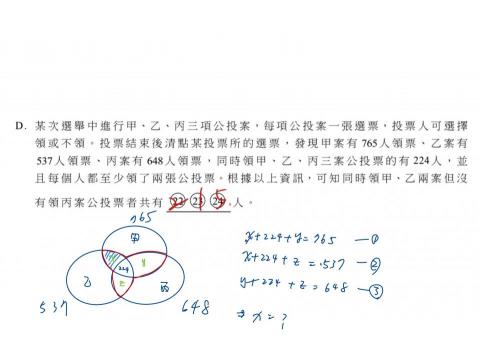 D. 某次選舉中進行甲、乙、丙三項公投案，每項公投案一張選票，投票人可選擇
領或不領。投票結束後清點某投票所的選票，發現甲案有765人領票、乙案有
537人領票、丙案有648人領票，同時領甲、乙、丙三案公投票的有224人，並
且每個人都至少領了兩張公投票。根據以上資訊，可知同時領甲、乙兩案但沒
有領丙案公投票者共有 22 23 24 人。
1 5
765
甲
224
y
乙
z
丙
537
648
x+224+y=765 —①
x+224+z=537 —②
y+224+z=648 —③
⇒ x=?